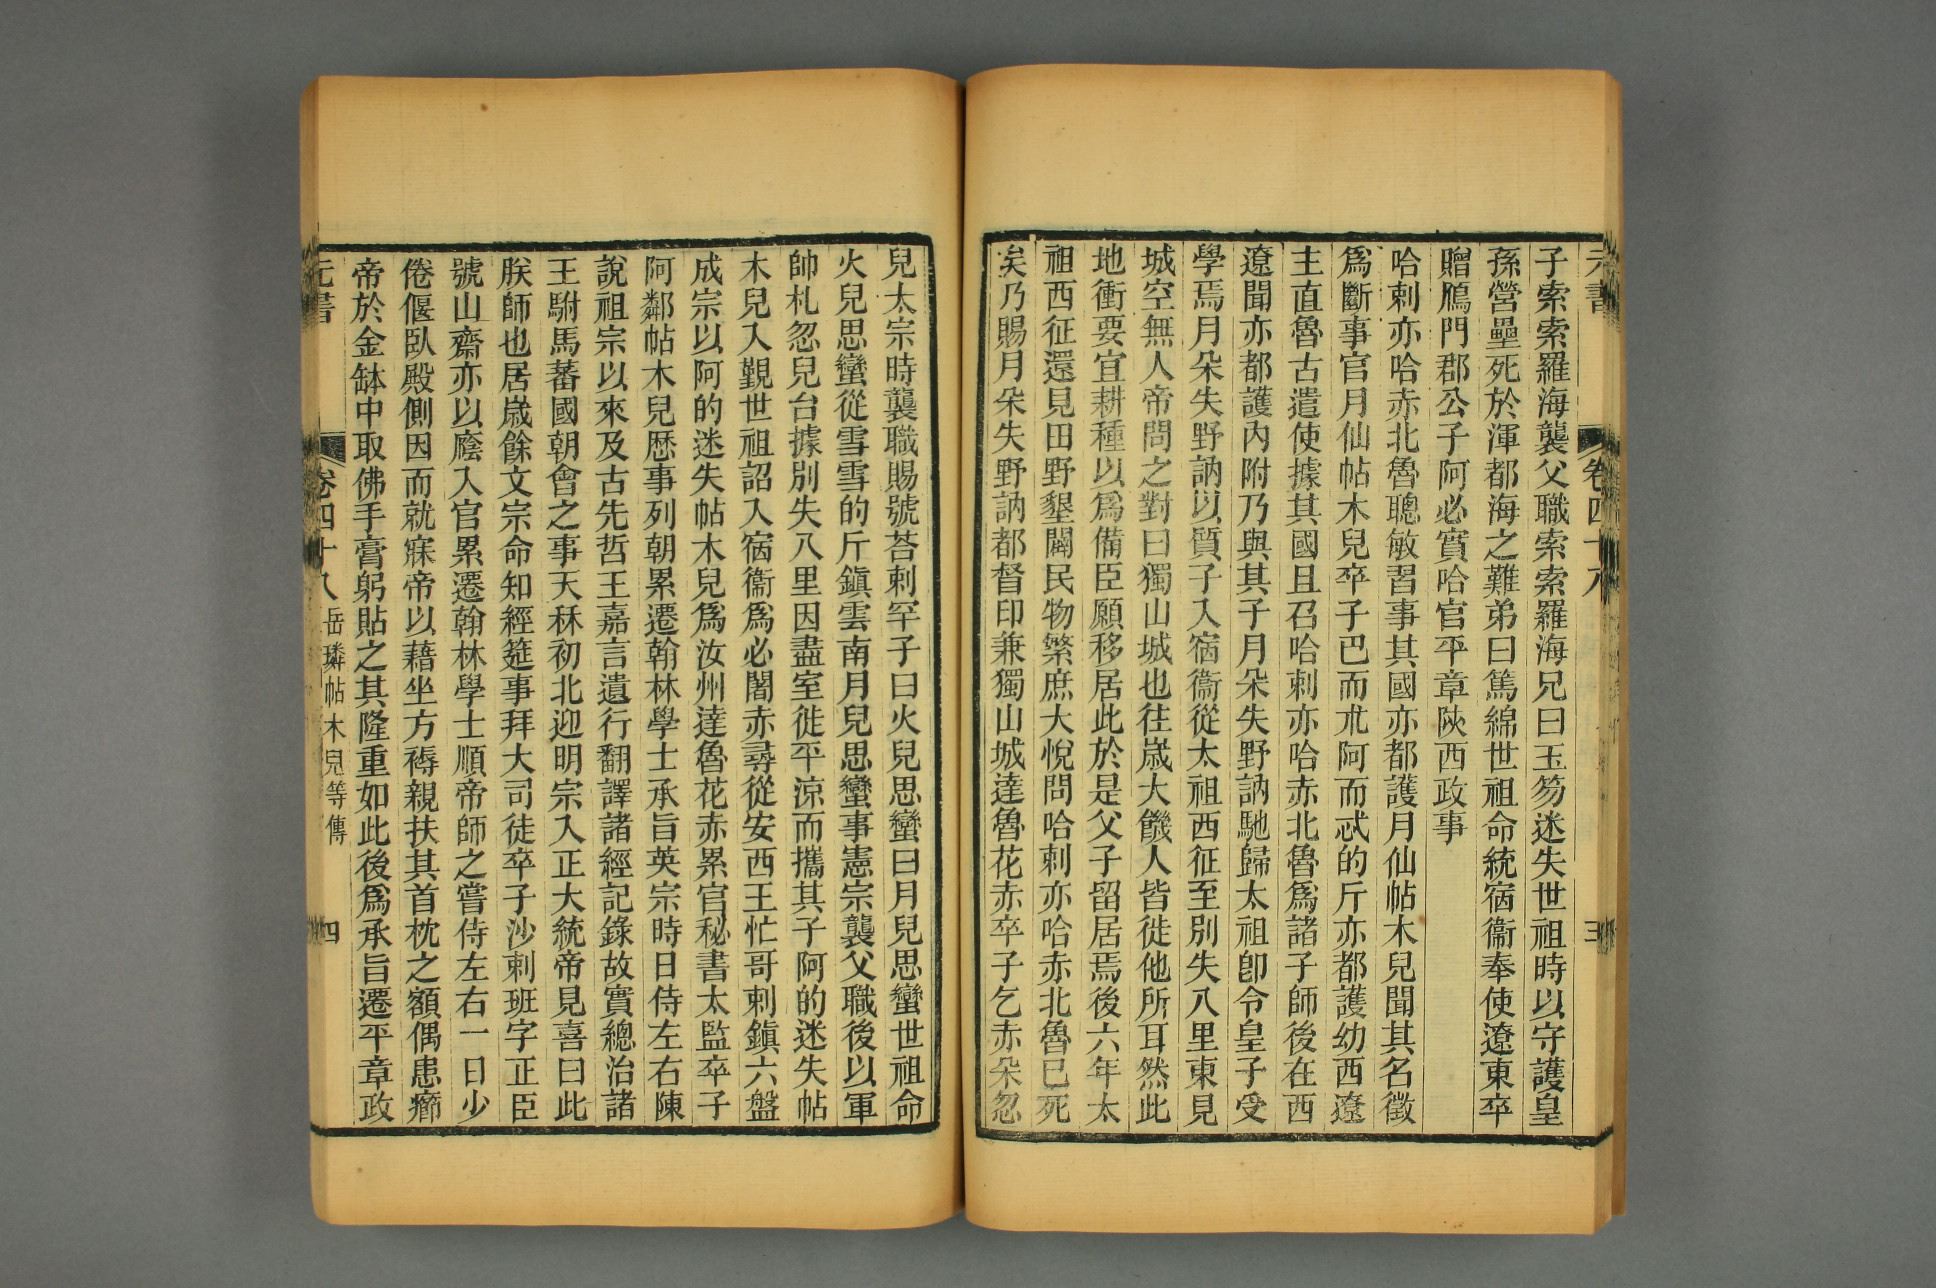 元書
卷四十八
三
子索索羅海襲父職索索羅海兄曰玉笏迷失世祖時以守護皇
孫營壘死於渾都海之難弟曰篤綿世祖命統宿衞奉使遼東卒
贈鴈門郡公子阿必實哈官平章陝西政事
哈剌亦哈赤北魯聰敏習事其國亦都護月仙帖木兒聞其名徵
爲斷事官月仙帖木兒卒子巴而朮阿而忒的斤亦都護幼西遼
主直魯古遣使據其國且召哈剌亦哈赤北魯爲諸子師後在西
遼聞亦都護內附乃與其子月朵失野訥馳歸太祖卽令皇子受
學焉月朵失野訥以質子入宿衞從太祖西征至別失八里東見
城空無人帝問之對曰獨山城也往歲大饑人皆徙他所耳然此
地衝要宜耕種以爲備臣願移居此於是父子留居焉後六年太
祖西征還見田野墾闢民物繁庶大悅問哈剌亦哈赤北魯已死
矣乃賜月朵失野訥都督印兼獨山城達魯花赤卒子乞赤朵忽
兒太宗時襲職賜號荅剌罕子曰火兒思蠻曰月兒思蠻世祖命
火兒思蠻從雪雪的斤鎭雲南月兒思蠻事憲宗襲父職後以軍
帥札忽兒台據別失八里因盡室徙平涼而攜其子阿的迷失帖
木兒入覲世祖詔入宿衞爲必闍赤尋從安西王忙哥剌鎭六盤
成宗以阿的迷失帖木兒爲汝州達魯花赤累官秘書太監卒子
阿鄰帖木兒歷事列朝累遷翰林學士承旨英宗時日侍左右陳
說祖宗以來及古先哲王嘉言遺行翻譯諸經記錄故實總治諸
王駙馬蕃國朝會之事天秝初北迎明宗入正大統帝見喜曰此
朕師也居歲餘文宗命知經筵事拜大司徒卒子沙剌班字正臣
號山齋亦以廕入官累遷翰林學士順帝師之嘗侍左右一日少
倦偃臥殿側因而就寐帝以藉坐方褥親扶其首枕之額偶患癤
帝於金缽中取佛手膏躬貼之其隆重如此後爲承旨遷平章政
元書
卷四十八
岳璘帖木兒等傳
四